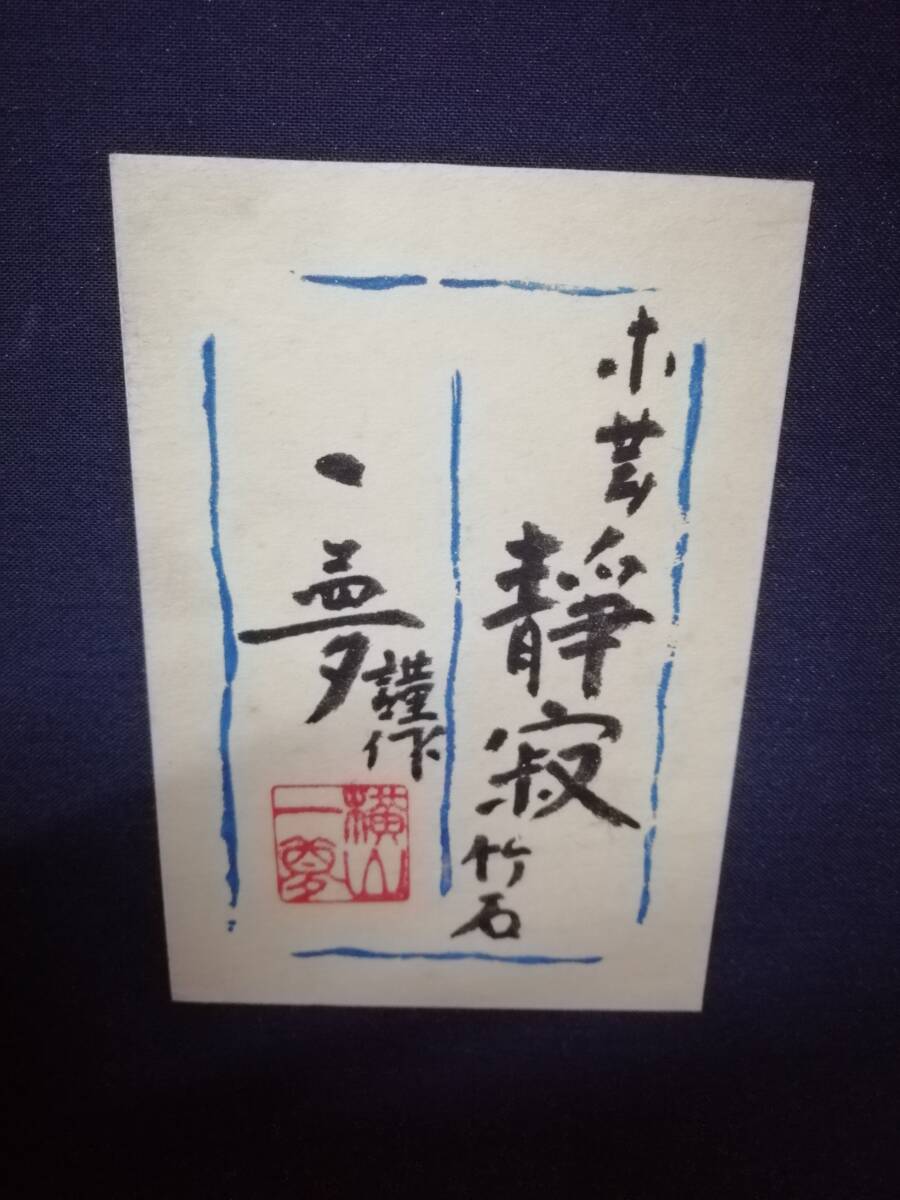 木芸 靜寂 竹石
一夢 謹作
横山一夢